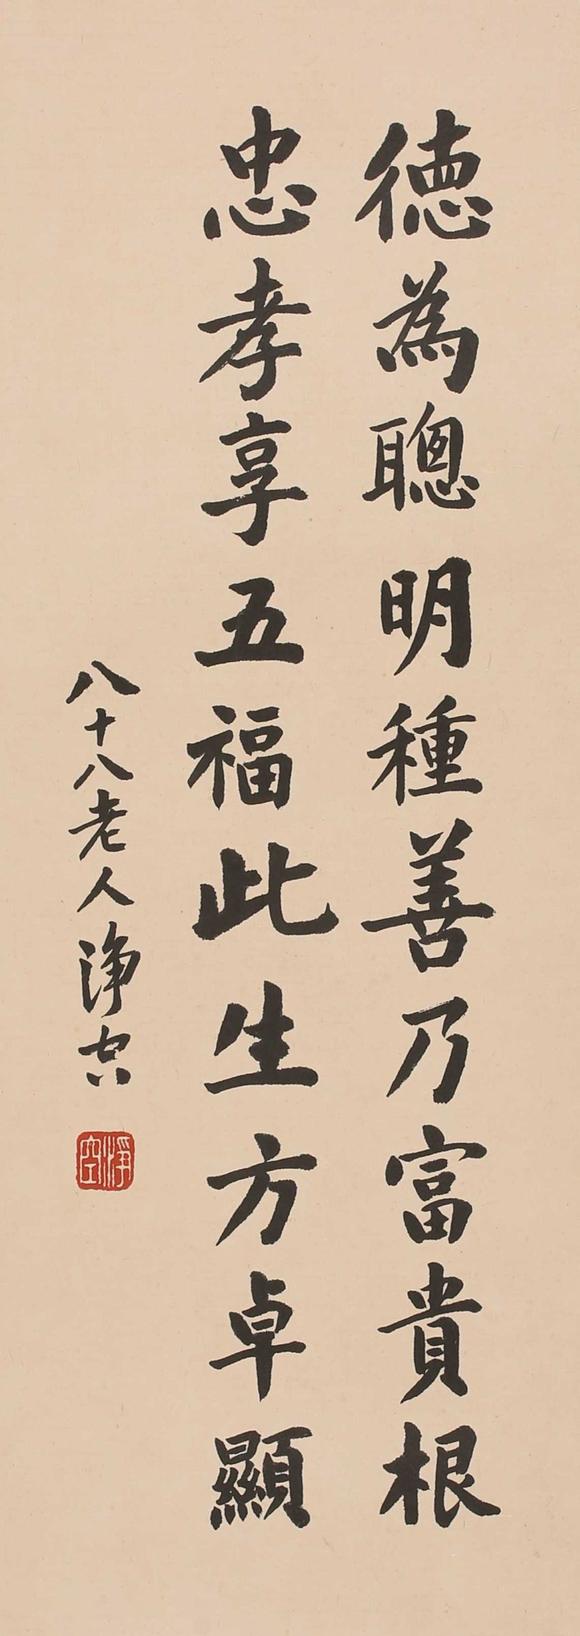 德為聰明種善乃富貴根
忠孝享五福此生方卓顯
八十八老人淨空
淨空